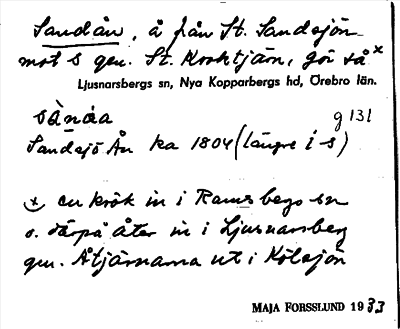 Sandån, å från St. Sandsjön
mot S gm. St. Kroktjärn, gör så x
Ljusnarsbergs sn, Nya Kopparbergs hd, Örebro län.
sànáa g 131
Sandsjö Ån ka 1804 (längre i S)
x en krök in i Ramsbergs sn
o. därpå åter in i Ljusnarsberg
gm. Åtjärnarna ut i Kölsjön
MAJA FORSSLUND 1933